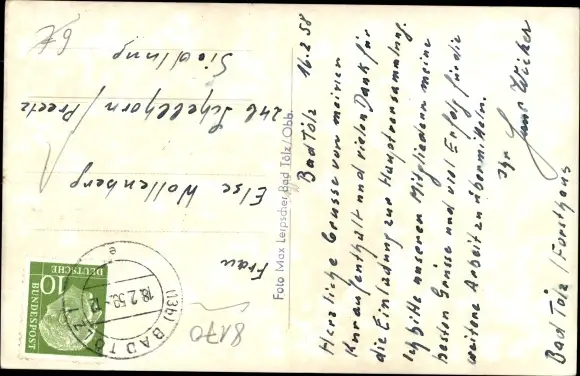 Bad Tölz 16.2.58
Herzliche Grüsse von meinem
Kuraufenthalt und vielen Dank für
die Einladung zur Hauptversammlung.
Ich bitte unseren Mitgliedern meine
besten Grüsse und viel Erfolg für die
weitere Arbeit zu übermitteln.
Ihr
Bad Tölz / Forsthaus
Foto Max Lerpscher, Bad Tölz/Obb.
Frau
Else Wollenberg
24b Schellhorn / Preetz
Siedlung
8170
(13b) BAD TÖLZ
18.2.58.12
e
10
DEUTSCHE
BUNDESPOST